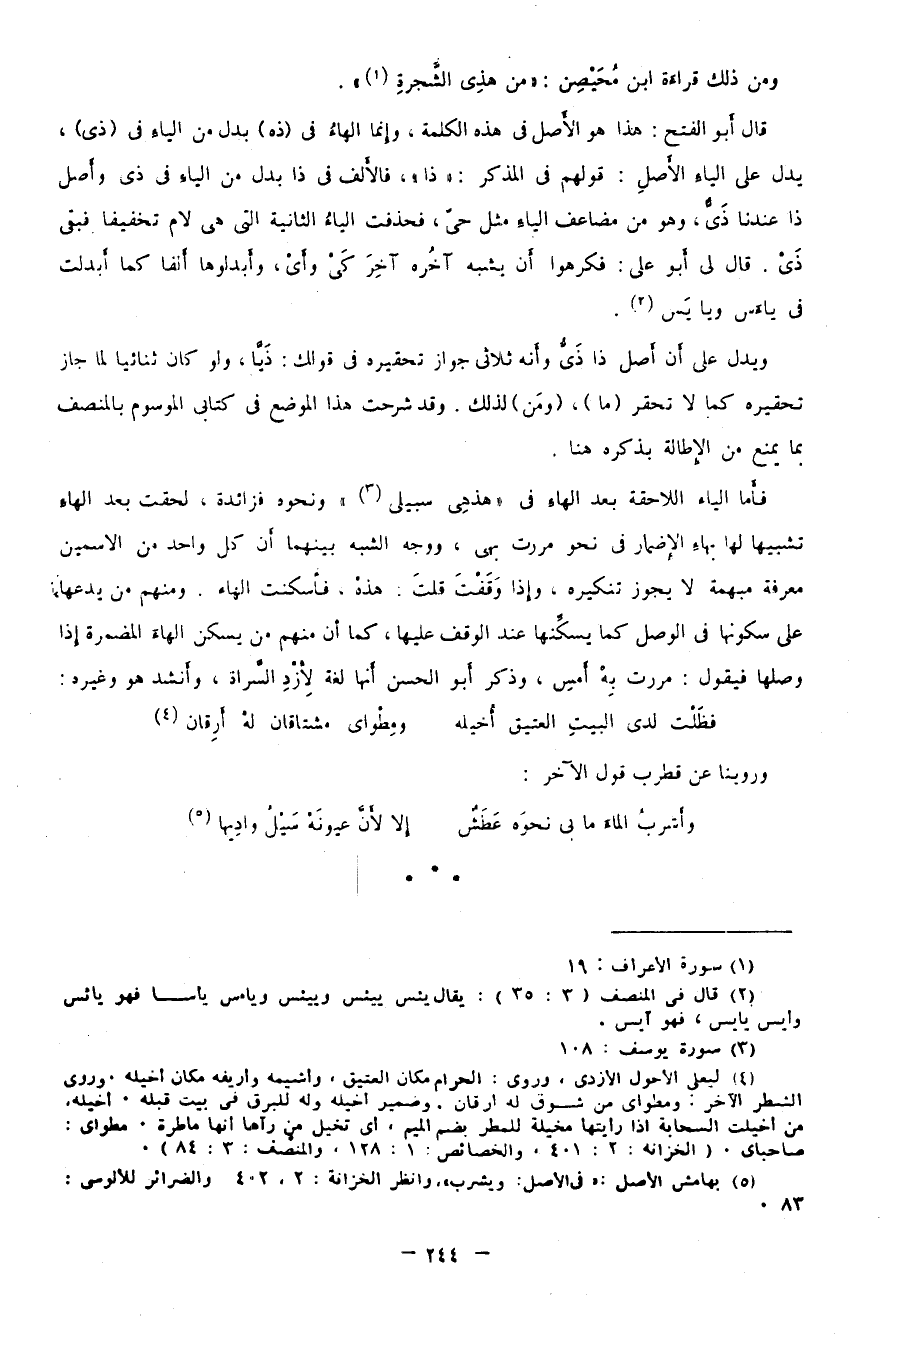 ومن ذلك قراءة ابن مُحَيْصِن : «من هذِى الشَّجرةِ (١)» .
قال أبو الفتح : هذا هو الأصل فى هذه الكلمة ، وإنما الهاءُ فى (ذه) بدل من الياء فى (ذى) ،
يدل على الياء الأصلِ : قولهم فى المذكر : «ذا» ، فالألف فى ذا بدل من الياء فى ذى وأصل
ذا عندنا ذَىٌّ ، وهو من مضاعف الياء مثل حىّ ، فحذفت الياءُ الثانية التى هى لام تخفيفا فبقى
ذَىْ . قال لى أبو على : فكرهوا أن يشبه آخُره آخِرَ كَىْ وأَىْ ، وأبدلوها ألفا كما أبدلت
فى ياءَس ويا يَس (٢) .
ويدل على أن أصل ذا ذَىٌّ وأنه ثلاثى جواز تحقيره فى قولك : ذَيَّا ، ولو كان ثنائيا لما جاز
تحقيره كما لا تحقر (ما) ، (ومَن) لذلك . وقد شرحت هذا الموضع فى كتابى الموسوم بالمنصف
بما يمنع من الإطالة بذكره هنا .
فأما الياء اللاحقة بعد الهاء فى «هذهِى سبيلى (٣) » ونحوه فزائدة ، لحقت بعد الهاء
تشبيها لها بهاء الإضمار فى نحو مررت بهى ، ووجه الشبه بينهما أن كل واحد من الاسمين
معرفة مبهمة لا يجوز تنكيره ، وإذا وَقَفْتَ قلتَ : هذهْ ، فأسكنت الهاء . ومنهم من يدعها
على سكونها فى الوصل كما يسكِّنها عند الوقف عليها ، كما أن منهم من يسكن الهاءَ المضمرة إذا
وصلها فيقول : مررت بِهْ أمس ، وذكر أبو الحسن أنها لغة لِأَزْدِ السَّراة ، وأنشد هو وغيره :
فظَلْت لدى البيتِ العتيق أُخيله ومِطْواى مشتاقان لهْ أرِقان (٤)
وروينا عن قطرب قول الآخر :
وأشربُ الماءَ ما بى نحوَه عَطَشٌ إلا لأَنَّ عيونَهْ سَيْلُ وادِيها (٥)
(١) سورة الأعراف : ١٩
(٢) قال فى المنصف ( ٣ : ٣٥ ) : يقال يئس ييئس وييئس وياءس يأسا فهو يائس
وأيس يايس ، فهو آيس .
(٣) سورة يوسف : ١٠٨
(٤) ليعلى الأحول الأزدى ، وروى : الحرام مكان العتيق ، وأشيمه وأريغه مكان أخيله . وروى
الشطر الآخر : ومطواى من شوق له أرقان . وضمير أخيله وله للبرق فى بيت قبله . أخيله،
من أخيلت السحابة اذا رأيتها مخيلة للمطر بضم الميم ، أى تخيل من رآها أنها ماطرة . مطواى :
صاحباى . ( الخزانة : ٢ : ٤٠١ ، والخصائص : ١ : ١٢٨ ، والمنصف : ٣ : ٨٤ ) .
(٥) بهامش الأصل : « فى الأصل : ويشرب»، وانظر الخزانة : ٢ ، ٤٠٢ والضرائر للآلوسى :
٨٣ .
— ٢٤٤ —